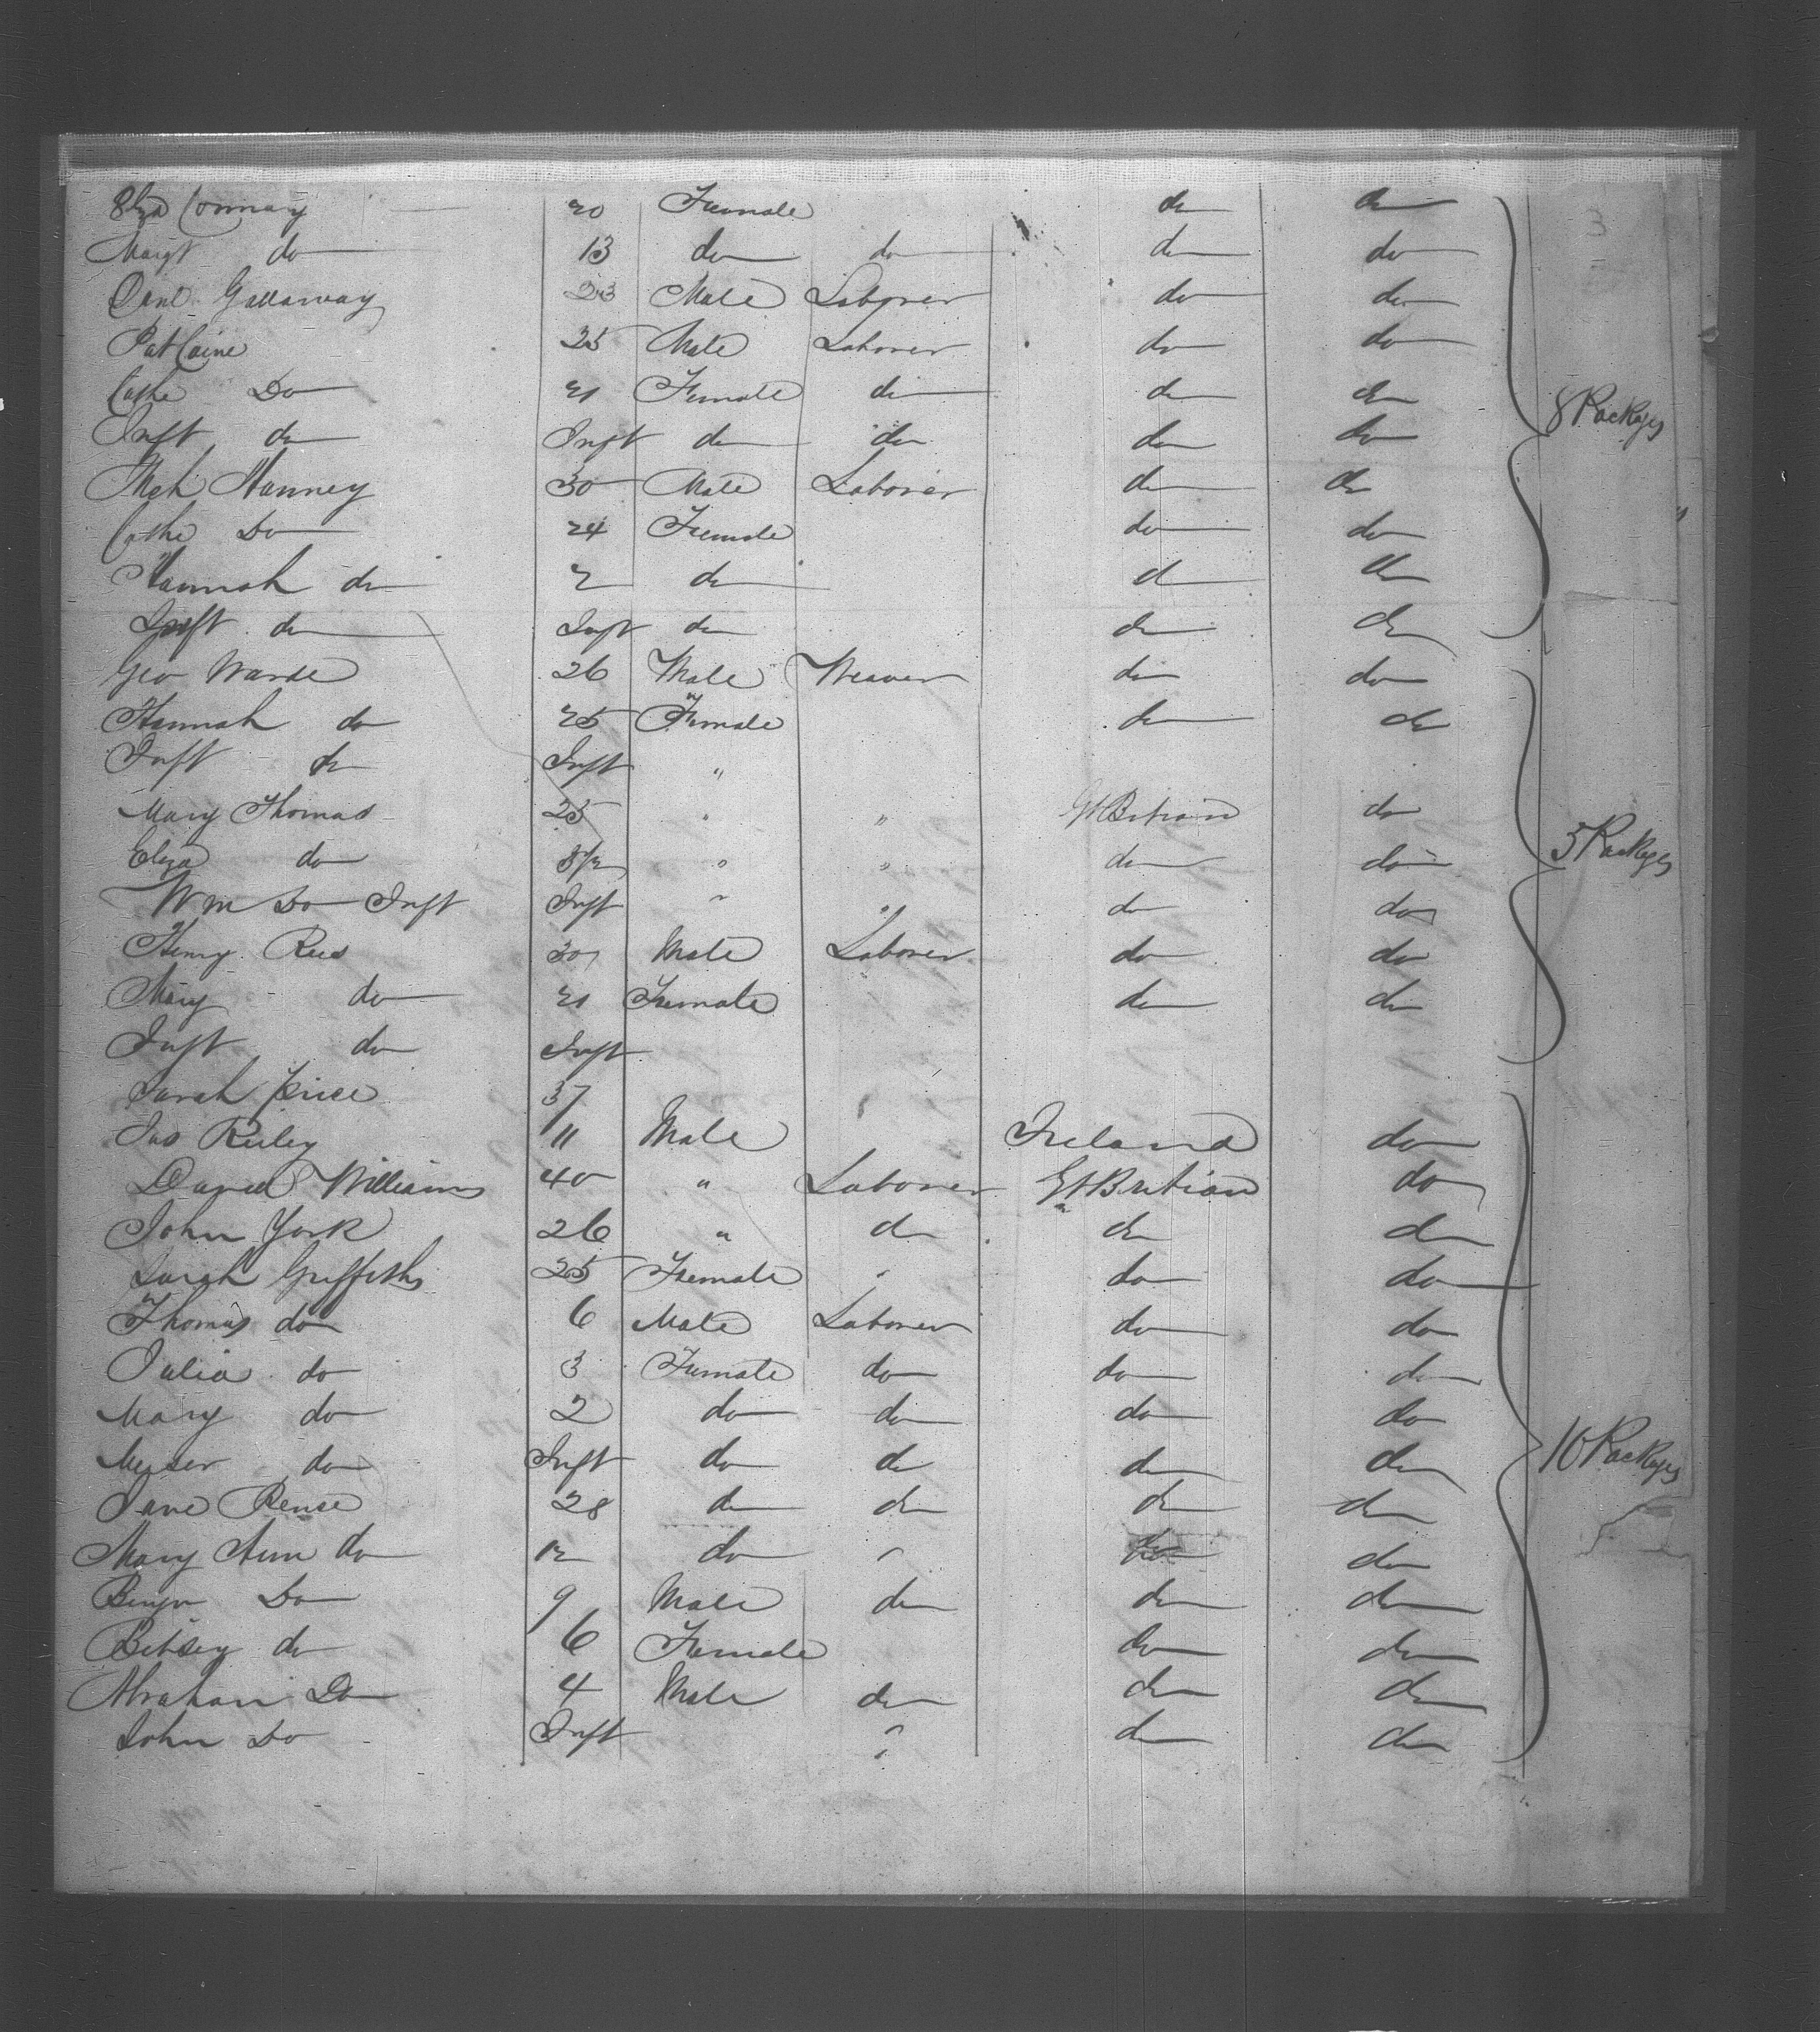 Eliza Conway 20 Female do do
Margt do 13 do do do do
Danl Gallaway 23 Male Laborer do do
Pat Caine 25 Male Laborer do do
Cathe Do 21 Female do do do
Inft do Inft do do do do
8 Packages
Mch Hanney 30 Male Laborer do do
Cathe Do 24 Female do do
Hannah do 2 do do do
Inft do Inft do do do
Geo Warde 26 Male Weaver do do
Hannah do 25 Female do do
Inft do Inft "
Mary Thomas 25 " " Gt Britian do
Eliza do " " do do
5 Packages
Wm Do Inft Inft " " do do
Henry Rees 30 Male Laborer do do
Mary do 21 Female do do
Inft do Inft
Sarah Price 37
Jas Reiley 11 Male Ireland do
Daniel Williams 40 " Laborer Gt Britian do
John York 26 " do do do
Sarah Griffiths 25 Female " do do
Thomas do 6 Male Laborer do do
Julia do 3 Female do do do
Mary do 2 do do do do
do Inft do do do do
10 Packages
Jane Rense 28 do do do do
Mary Ann do 12 do " do do
Benjn Do 9 Male do do do
Betsey do 6 Female do do
Abraham Do 4 Male do do do
John Do Inft " do do
"
3